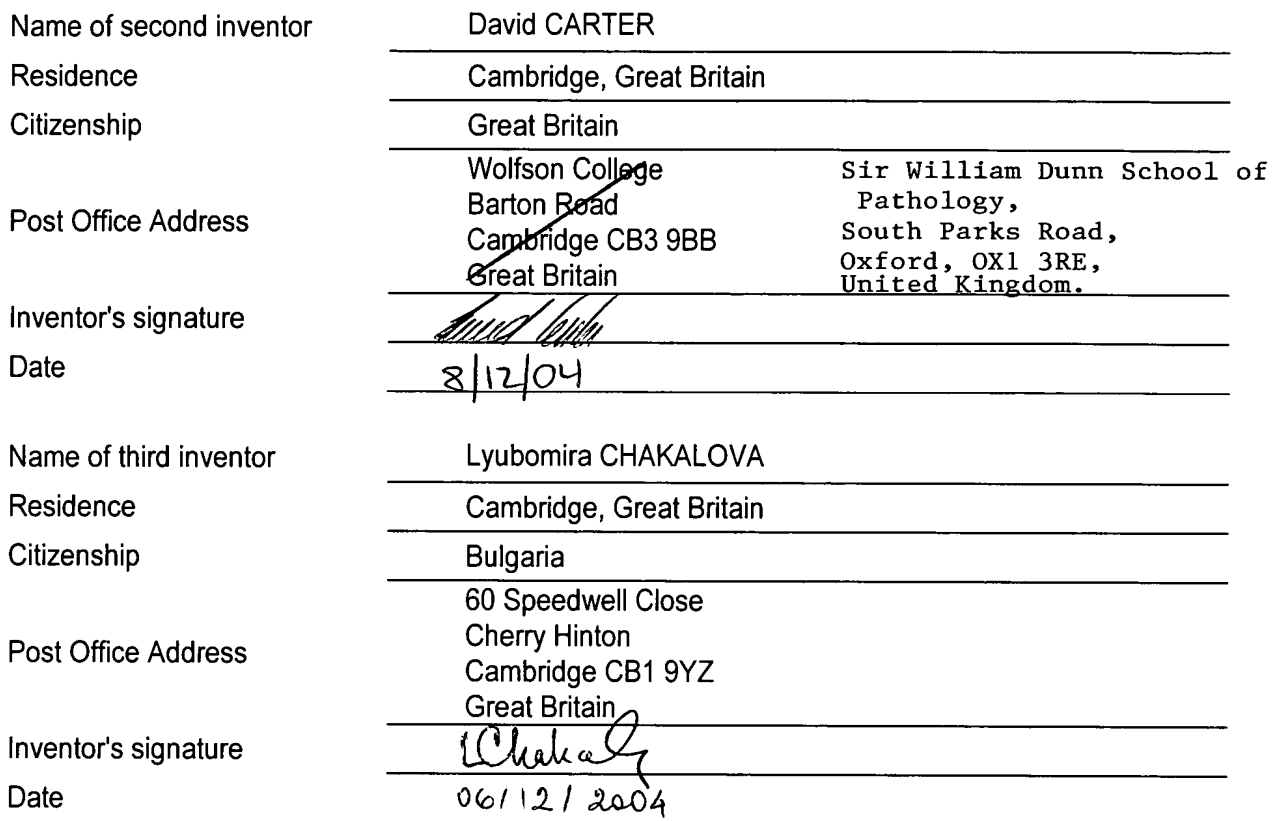 Name of second inventor David CARTER
Residence Cambridge, Great Britain
Citizenship Great Britain
Post Office Address
Wolfson College
Barton Road
Cambridge CB3 9BB
Great Britain
Sir William Dunn School of
Pathology,
South Parks Road,
Oxford, OX1 3RE,
United Kingdom.
Inventor's signature
Date 8/12/04
Name of third inventor Lyubomira CHAKALOVA
Residence Cambridge, Great Britain
Citizenship Bulgaria
Post Office Address
60 Speedwell Close
Cherry Hinton
Cambridge CB1 9YZ
Great Britain
Inventor's signature
Date 06/12/2004